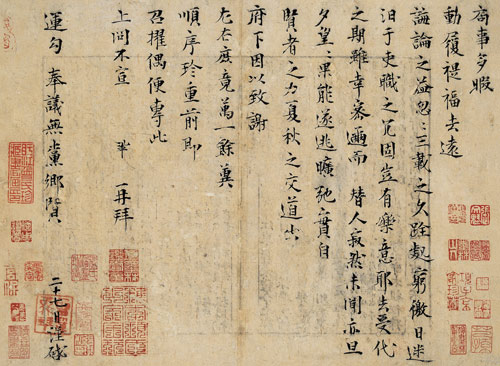 局事多暇
動履禔福去遠
誨論之益忽忽三載之久跧處窮徼日迷
汨于吏職之冗固豈有樂意耶去受代
之期雖幸密邇而替人寂然未聞亦旦
夕望望果能遂逃曠弛實自
賢者之力夏秋之交道出
府下因以致謝
左右庶竟萬一餘冀
順序珍重前即
召擢偶便專此
上問不宣 鞏 再拜
運勾奉議無黨鄉賢
二十七日謹啟